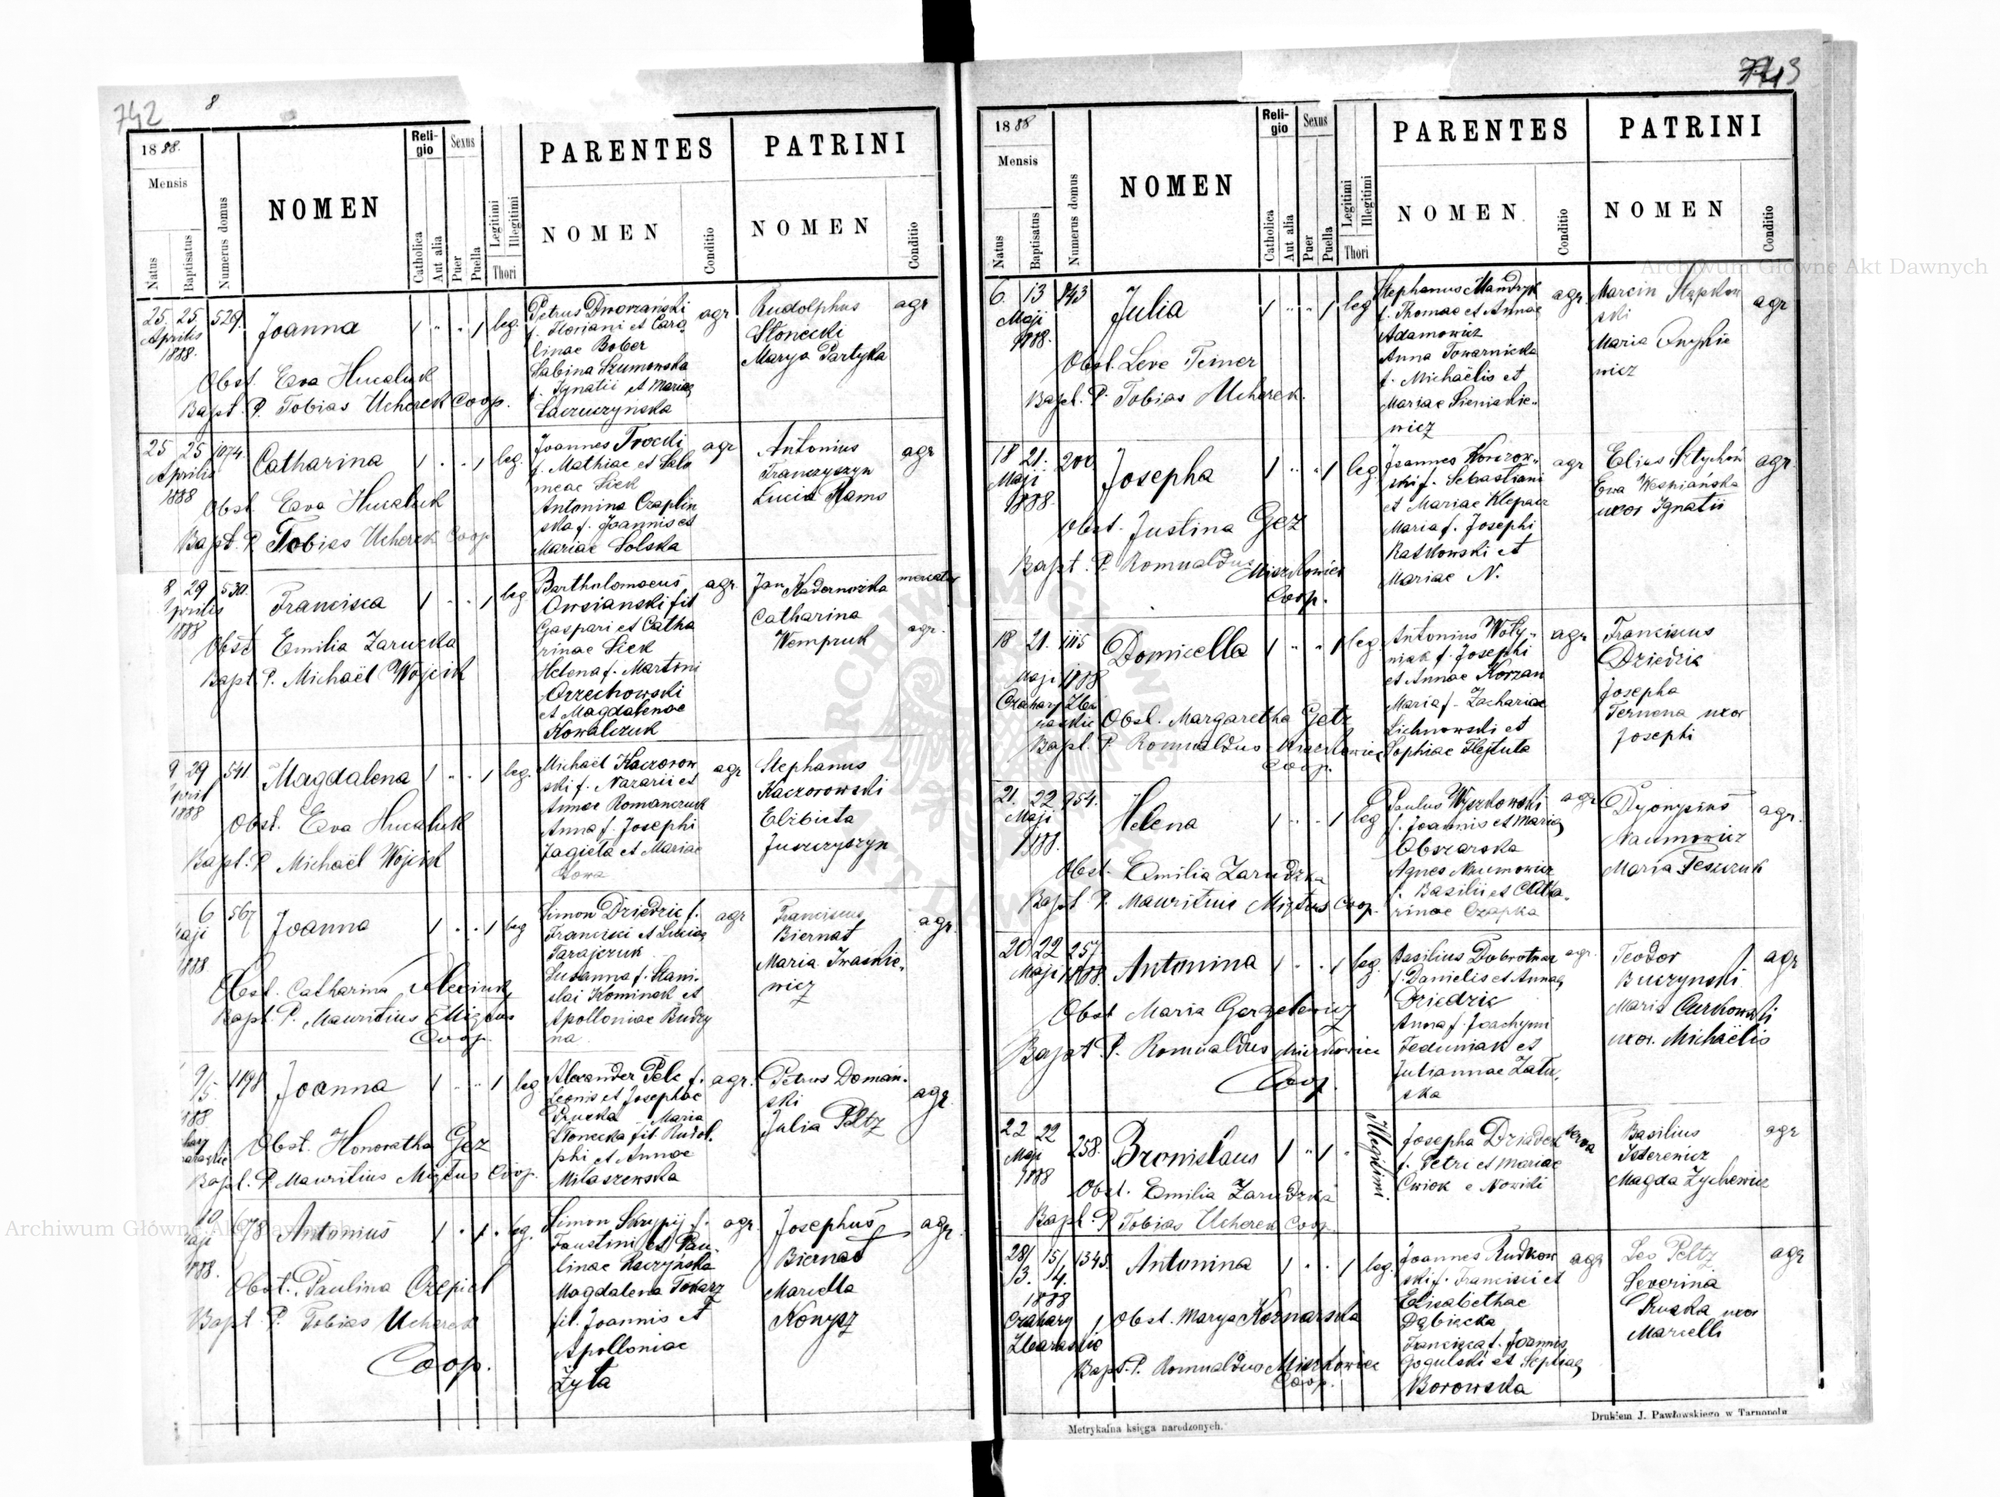 742
8
1888.
Mensis
Natus
Baptisatus
Numerus domus
NOMEN
Religio
Catholica
Aut alia
Sexus
Puer
Puella
Legitimi
Illegitimi
Thori
PARENTES
NOMEN
Conditio
PATRINI
NOMEN
Conditio
25. 25. 529.
Aprilis
1888.
Joanna
leg.
Obst. Eva Hucaluk
Bapt. P. Tobias Ucherek Coop.
Petrus Dworzański
f. Floriani et Caro
linae Bober
Sabina Szumowska
f. Ignatii et Mariae
Łaczuczyńska
agr
Rudolphus
Słonecki
Marya Partyka
agr
25 25 1074.
Aprilis
1888
Catharina
leg.
Obst. Eva Hucaluk
Bapt. P. Tobias Ucherek Coop
Joannes Trocki
f. Mathiae et Salo
meae Siek
Antonina Czaplin
ska f. Joannis et
Mariae Solska
agr
Antonius
Franczyszyn
Lucia Hams
agr
8 29 530.
Aprilis
1888
Francisca
leg
Obst Emilia Zarucka
Bapt. P. Michaël Wojcik
Bartholomaeus
Owsianski fil
Gaspari et Catha
rinae Siek
Helena f. Martini
Orzechowski
et Magdalenae
Kowalczuk
agr.
Jan Kadernozka
mercator
Catharina
Wempruk
agr.
9 29 541
April
1888
Magdalena
leg.
Obst. Eva Hucaluk
Bapt. P. Michaël Wojcik
Michaël Kaczorow
ski f. Nazarii et
Annae Romanczuk
Anna f. Josephi
Jagieła et Mariae
agr
Stephanus
Kaczorowski
Elżbieta
Juszczyszyn
6 567
Maji
1888
Joanna
leg
Obst. Catharina
Bapt. P. Mauritius Miętus
Coop.
Simon Dziedzic f.
Francisci et Luciae
Tarajczuk
Susanna f. Stani-
slai Kominek et
Apolloniae Budzy
na.
agr
Franciscus
Biernat
Maria Iwaskie-
wicz
agr.
9/5. 1198
1888
Joanna
leg
Obst. Honoratha Gez
Bapt. P. Mauritius Miętus Coop.
Alexander Pelc f.
Leonis et Josephae
Pruska Maria
Słonecka fil. Rudol-
phi et Annae
Milaszewska
agr.
Petrus Doman-
ski
Julia Peltz
agr.
10 678
Maji
1888.
Antonius
leg.
Obst. Paulina Czepiel
Bapt. P. Tobias Ucherek
Coop.
Simon Skrypij f.
Faustini et Pau-
linae Kaczyńska
Magdalena Tokarz
fil. Joannis et
Apolloniae
Żyła
agr.
Josephus
Biernat
Mariella
Konysz
agr.
743
1888
Mensis
Natus
Baptisatus
Numerus domus
NOMEN
Religio
Catholica
Aut alia
Sexus
Puer
Puella
Legitimi
Illegitimi
Thori
PARENTES
NOMEN
Conditio
PATRINI
NOMEN
Conditio
6. 13 143
Maji
1888.
Julia
leg
Obst. Leve Teiner
Bapt. P. Tobias Ucherek.
Stephanus Mandryk
f. Thomae et Annae
Adamowicz
Anna Towarnicka
f. Michaëlis et
Mariae Sieniakie-
wicz
agr.
Marcin Stąpkow
ski
Maria
wicz
agr
18 21. 200.
Maji
1888.
Josepha
leg.
Obst. Justina Gez
Bapt. P. Romualdus Miszkowicz
Coop.
Joannes Korczow-
ski f. Sebastiani
et Mariae Klepacz
Maria f. Josephi
Ratkowski et
Mariae N.
agr
Elias Sztychor
Ewa Wesniańska
uxor Ignatii
agr.
18 21. 1115
Maji 1888
Czahary Zba
raskie
Domicella
leg
Obst. Margaretha Getz
Bapt. P. Romualdus Miszkowicz
Coop.
Antonius Woły-
niak f. Josephi
et Annae Korzan
Maria f. Zachariae
Lichnowski et
Sophiae Hejtuta
agr
Franciscus
Dziedzic
Josepha
Ternona uxor
Josephi
21. 22 954.
Maji
1888.
Helena
leg
Obst. Emilia Zarudzka
Bapt P. Mauritius Miętus Coop.
Paulus Wyszkowski
f. Joannis et Mariae
Obszarska
Agnes Naumowicz
f. Basilii et Catha-
rinae Czapka
agr
Dyonysius
Naumowicz
Maria Teszczuk
agr.
20 22 257
Maji 1888.
Antonina
leg.
Obst Maria Gargelewicz
Bapt P. Romualdus Miszkowicz
Coop.
Basilius Dobrotwor
f. Danielis et Annae
Dziedzic
Anna f. Joachymi
Feduniak et
Juliannae Zału-
ska
agr.
Teodor
Buczynski
Maria Curkowski
uxor. Michaëlis
agr
22 22 258.
Maji
1888
Bronislaus
Illegitimi
Obst. Emilia Zarudzka
Bapt. P Tobias Ucherek Coop.
Josepha Dziadek
f. Petri et Mariae
Cwiok e Nowiki
serva
Basilius
Isterewicz
Magda Zychewicz
agr
28/3. 15/4. 1345.
1888
Czahary
Zbaraskie
Antonina
leg.
Obst. Marya Koznarska
Bapt. P. Romualdus Miszkowicz
Coop.
Joannes Rudkow
ski f. Francisci et
Elisabethae
Dąbiecka
Francisca f. Joannis
Gogulski et Sophiae
Borowska
agr
Leo Peltz
Severina
Pruska uxor
Marcelli
agr
Metrykalna księga narodzonych.
Drukiem J. Pawłowskiego w Tarnopolu
Archiwum Główne Akt Dawnych
Archiwum Główne Akt Dawnych
ARCHIWUM GŁÓWNE AKT DAWNYCH